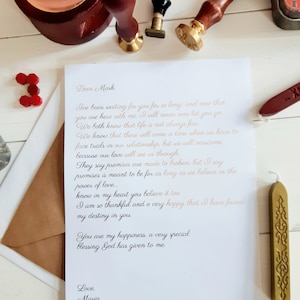 Dear Mark,
I've been waiting for you for so long, and now that
you are here with me, I will never let you go.
We both know that life is not always fair.
We know that there will come a time when we have to
face trials in our relationship, but we will overcome
because our love will see us through.
They say promises are made to broken, but I say
promises is meant to be for as long as we believe in the
power of love,
know in my heart you believe it too.
I am so thankful and a very happy that I have found
my destiny in you.
You are my happiness, a very special
blessing God has given to me.
Love,